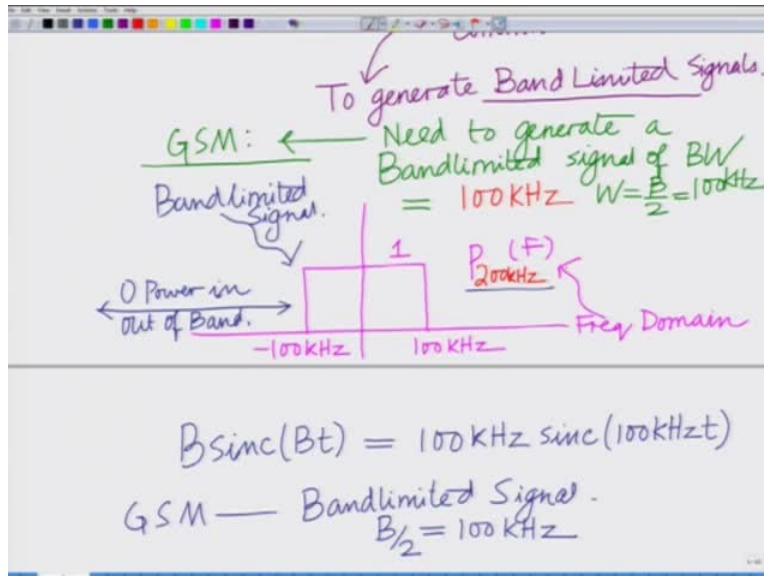 To generate Band Limited Signals.
GSM: ← Need to generate a
Bandlimited signal of BW
= 100KHZ W = B/2 = 100kHz
Bandlimited
Signal.
1
P200kHz (F)
0 Power in
out of Band.
Freq Domain
-100KHZ 100KHZ
Bsinc(Bt) = 100KHZ sinc(100KHZt)
GSM — Bandlimited Signal.
B/2 = 100KHZ